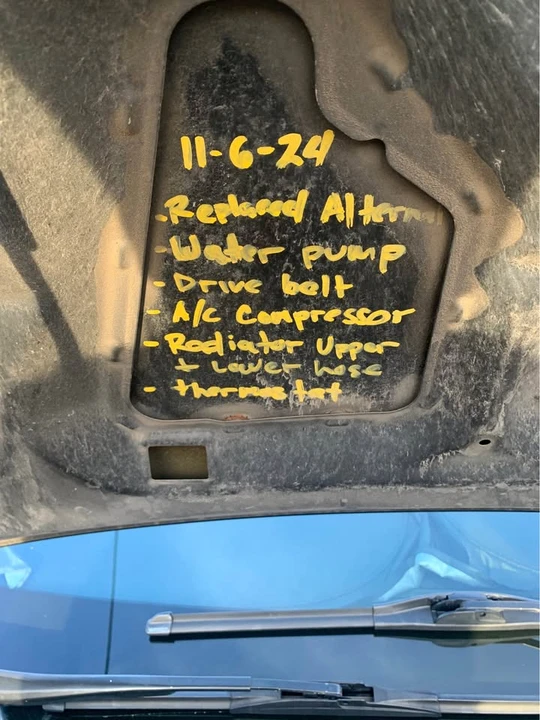 11-6-24
- Replaced Altern
- Water pump
- Drive belt
- A/c Compressor
- Radiator Upper
+ Lower hose
- thermostat